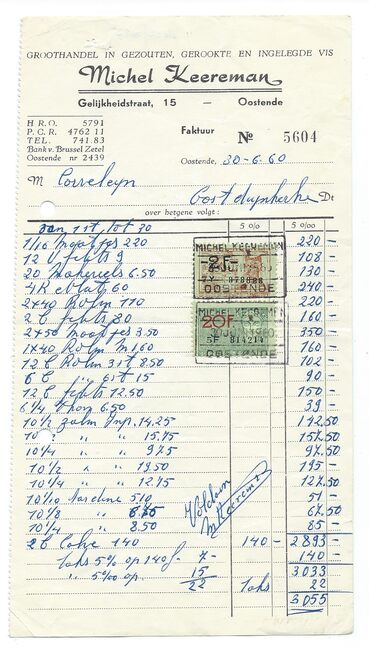 GROOTHANDEL IN GEZOUTEN, GEROOKTE EN INGELEGDE VIS
Michel Keereman
Gelijkheidstraat, 15 — Oostende
H R O. 5791
P. C. R. 4762 11
TEL. 741.83
Bank v. Brussel Zetel
Oostende nr 2439
Faktuur Nº 5604
Oostende, 30-6-60
M Correleyn
Oostduinkerke Dt
over hetgene volgt :
Van 1st tot 30 5 0/0 5 0/00
1/16 Maatjes 220 220 -
12 9 108 -
20 Makreels 6.50 130 -
4 60 240 -
2x40 Rolm 110 220 -
2 80 160 -
2x50 3.50 350
1x40 Rolm 1,60 160 -
12 Rolm 8.50 102 -
6 15 90 -
12 12.50 150 -
6 1/4 6.50 39 -
10 1/2 zalm 14.25 142.50
10 " " 15.75 157.50
10 1/4 " " 975 97.50
10 1/2 " " 19.50 195 -
10 1/4 " " 12.75 127.50
10 1/10 Sardine 5.10 51 -
10 1/8 " 6.75 67.50
10 1/4 " 8.50 85 -
2 140 140 - 2893 -
taks 5% op 140 f. 7 - 140 -
" 5‰ op. 15 3.033
22 taks 22
3.055
MICHEL KEEREMAN
2F
078088
OOSTENDE
MICHEL KEEREMAN
20F
5F 814214
OOSTENDE
Voldaan
MKeereman